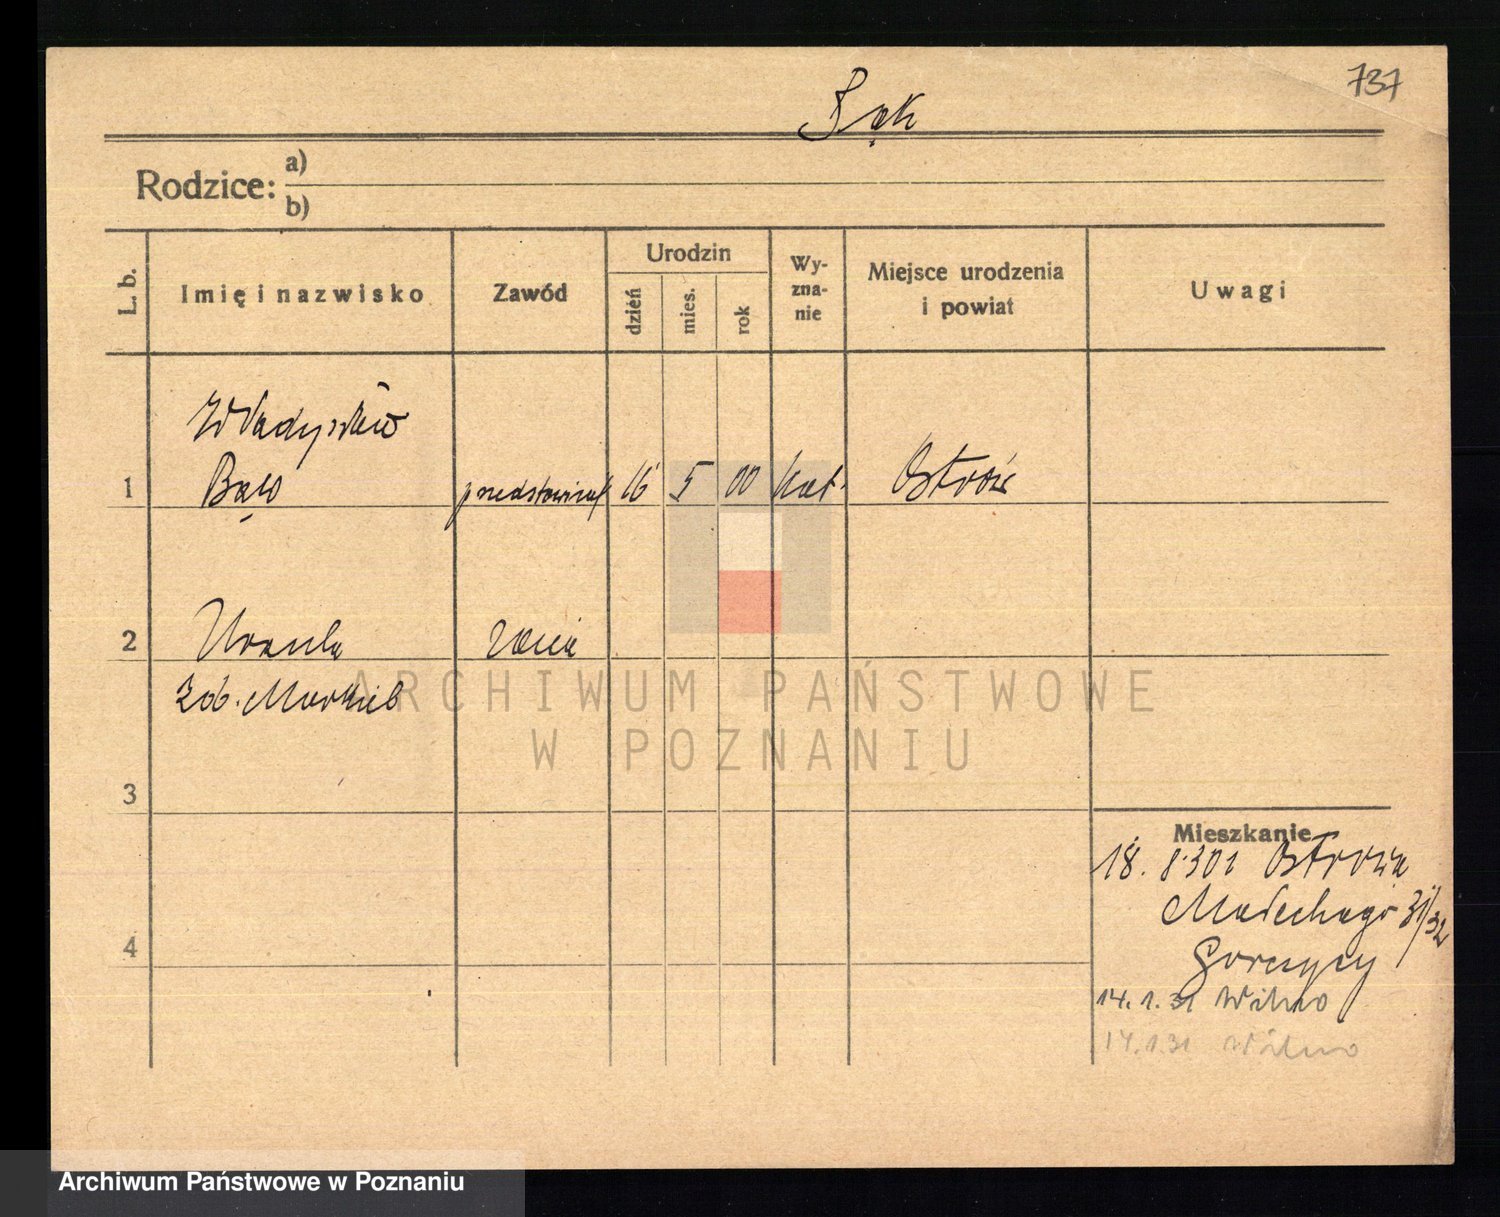 737
Bąk
Rodzice: a)
b)
L. b.
Imię i nazwisko
Zawód
Urodzin
dzień
mies.
rok
Wy-
zna-
nie
Miejsce urodzenia
i powiat
Uwagi
Władysław
1 Bąk 16 5 00 kat. Ostrów
2 Urszula
Zob.
3
4
Mieszkanie
18. 8. 30 z Ostrowa
31/32
14.1.31 Wilno
14.1.31 Wilno
ARCHIWUM PAŃSTWOWE
W POZNANIU
Archiwum Państwowe w Poznaniu